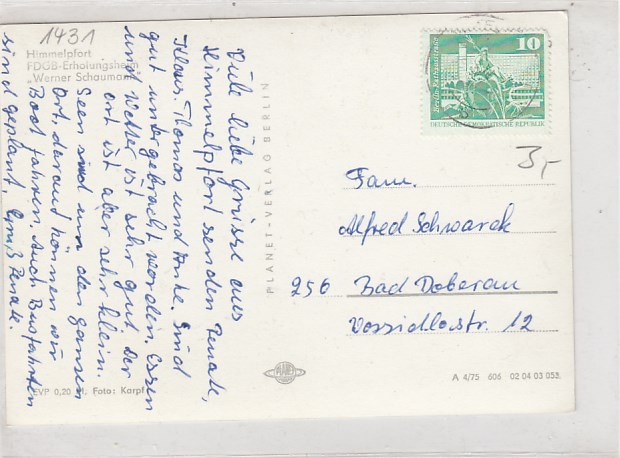 1431
Himmelpfort
FDGB-Erholungsheim
„Werner Schaumann"
Viele liebe Grüsse aus
Himmelpfort senden Renate,
Klaus, Thomas und Anke. Sind
gut untergebracht worden. Essen
und Wetter ist sehr gut. Der
Ort ist aber sehr klein.
Seen sind um den ganzen
Ort, darauf können wir
Boot fahren. Auch Busfahrten
sind geplant. Gruß Renate.
EVP 0,20 M. Foto: Karpf
PLANET-VERLAG BERLIN
PLANET
10
Berlin-Rathausstraße
DEUTSCHE DEMOKRATISCHE REPUBLIK
3,-
Fam.
Alfred Schwarck
256 Bad Doberan
Vossidlostr. 12
A 4/75 606 02 04 03 053